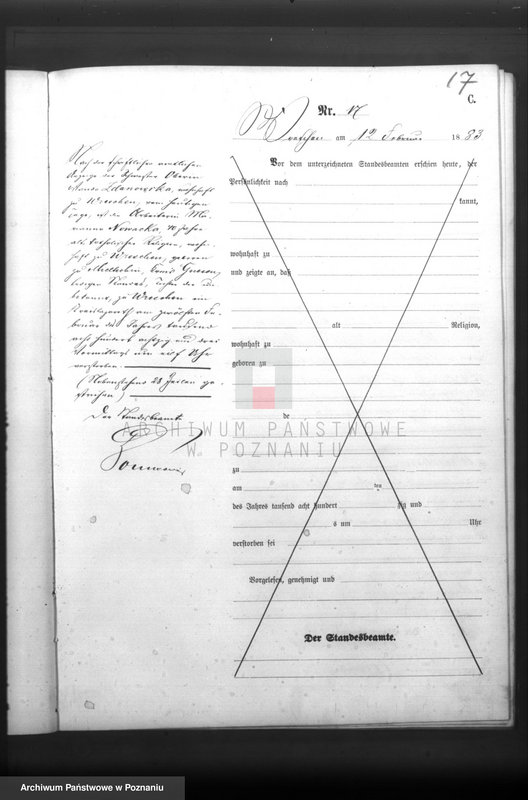 17
C.
Nr. 17
Wreschen am 12 Februar 1883
Vor dem unterzeichneten Standesbeamten erschien heute, der
Persönlichkeit nach
kannt,
wohnhaft zu
und zeigte an, daß
alt Religion,
wohnhaft zu
geboren zu
de
zu
am ten
des Jahres tausend acht hundert zig und
s um Uhr
verstorben sei
Vorgelesen, genehmigt und
Der Standesbeamte.
Nach der schriftlichen amtlichen
Anzeige der Schwester Oberin
Zdanowska, wohnhaft
zu Wreschen, vom heutigen
Tage, ist die Arbeiterin Ma-
rianna Nowacka, 70 Jahre
alt katholischer Religion, wohn-
haft zu Wreschen, geboren
zu Kreis Gnesen,
Tochter der
zu Wreschen im
Kreislazareth am zwölften Fe-
bruar des Jahres tausend
acht hundert achtzig und drei
Vormittags um elf Uhr
verstorben.
(Nebenstehend 23 Zeilen ge-
strichen)
Der Standesbeamte
ARCHIWUM PAŃSTWOWE
W POZNANIU
Archiwum Państwowe w Poznaniu